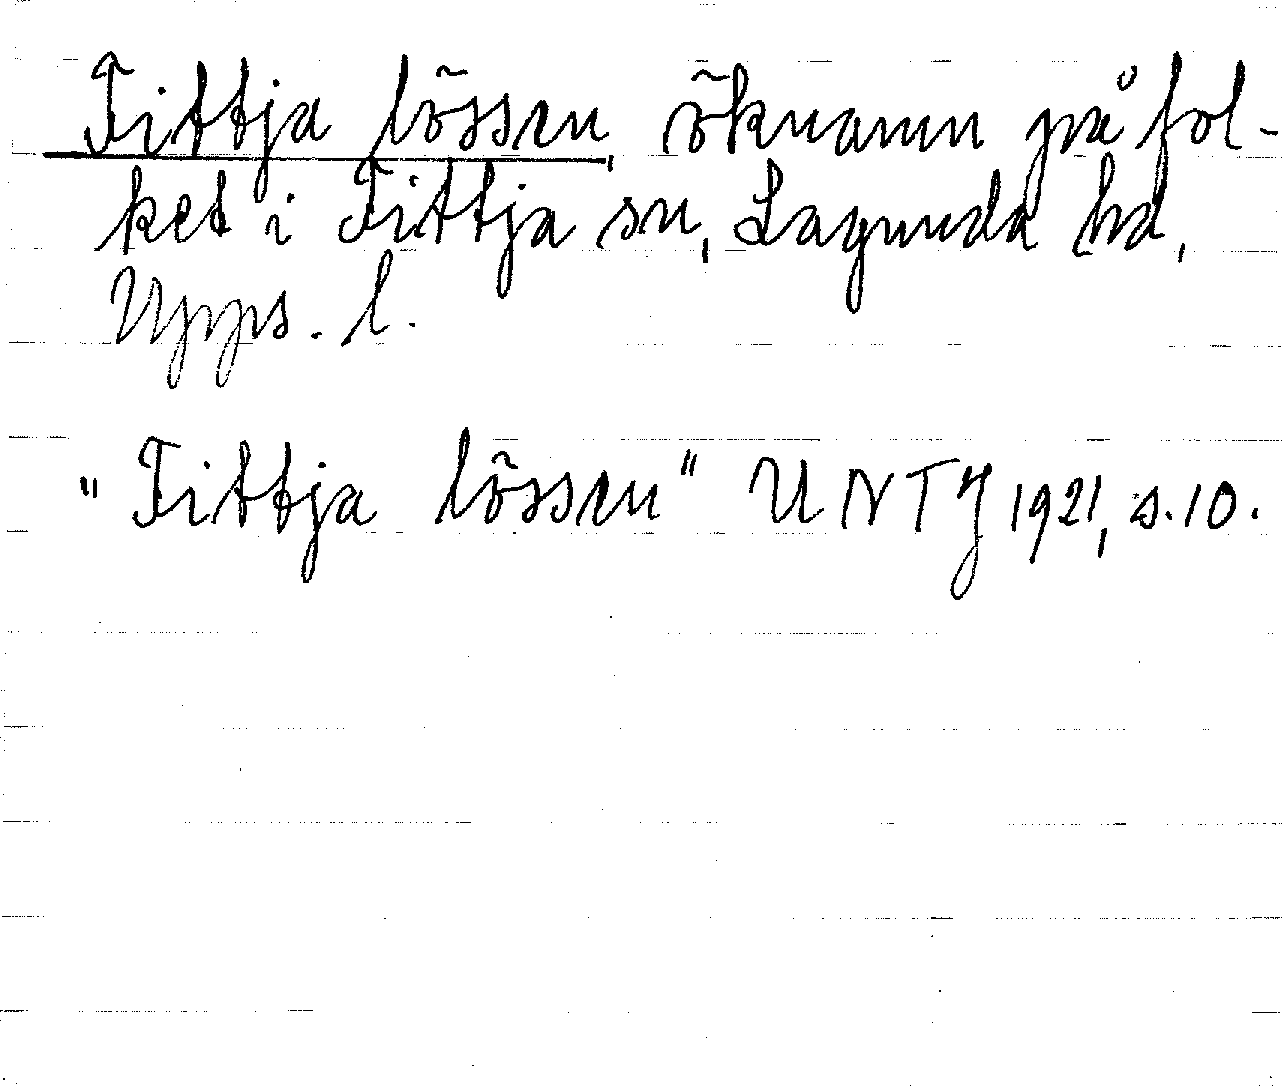 Fittja lössen, öknamn på fol-
ket i Fittja sn, Lagunda hd,
Upps. l.
"Fittja lössen" UNTJ 1921, s. 10.